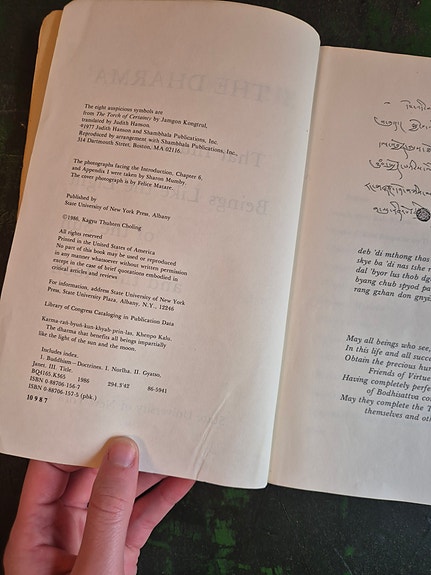 The eight auspicious symbols are
from The Torch of Certainty by Jamgon Kongtrul,
translated by Judith Hanson.
©1977 Judith Hanson and Shambhala Publications, Inc.
Reproduced by arrangement with Shambhala Publications, Inc.,
314 Dartmouth Street, Boston, MA 02116.
The photographs facing the Introduction, Chapter 6,
and Appendix I were taken by Sharon Mumby.
The cover photograph is by Felice Matare.
Published by
State University of New York Press, Albany
©1986, Kagyu Thubten Choling
All rights reserved
Printed in the United States of America
No part of this book may be used or reproduced
in any manner whatsoever without written permission
except in the case of brief quotations embodied in
critical articles and reviews
For information, address State University of New York
Press, State University Plaza, Albany, N.Y., 12246
Library of Congress Cataloging in Publication Data
Karma-raṅ-byuṅ-kun-khyab-prin-las, Khenpo Kalu.
The dharma that benefits all beings impartially
like the light of the sun and the moon.
Includes index.
1. Buddhism—Doctrines. I. Norlha. II. Gyatso,
Janet. III. Title.
BQ4165.K365 1986 294.3'42 86-5941
ISBN 0-88706-156-7
ISBN 0-88706-157-5 (pbk.)
10 9 8 7
THE DHARMA
That
Beings Li
deb 'di mthong thos
skye ba 'di nas tshe r
dal 'byor lus thob dg
byang chub spyod pa
rang gzhan don gnyi
May all beings who see,
In this life and all succe
Obtain the precious hum
Friends of Virtue
Having completely perfe
of Bodhisattva co
May they complete the T
themselves and oth